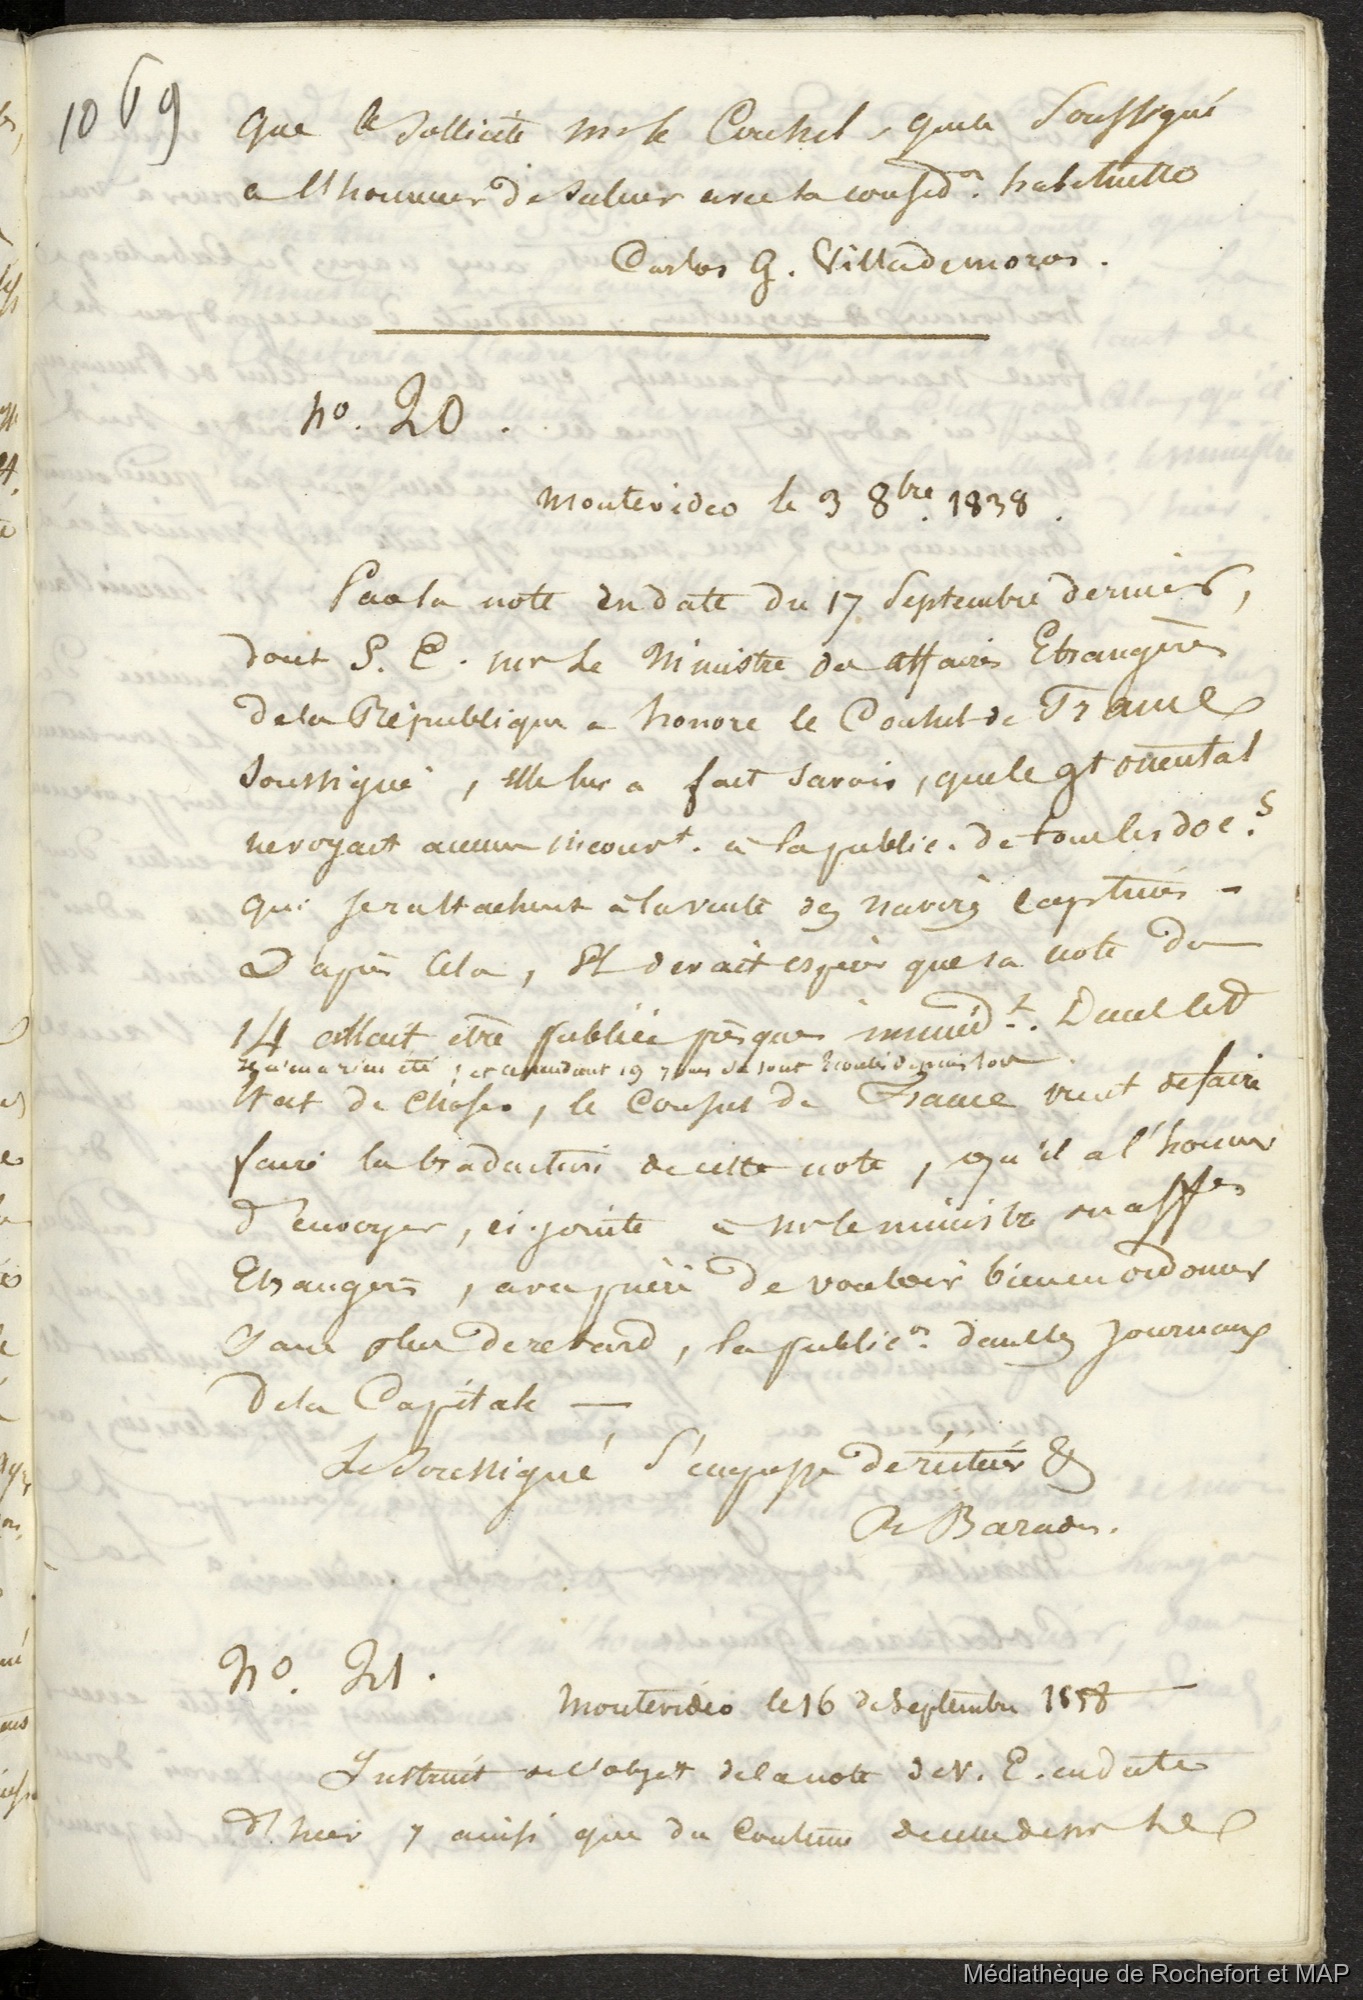 1069
que le sollicite mr le Consul, que le Soussigné
a l'honneur de saluer avec sa considon. habituelle
Carlos G. Villademoros.
No. 20.
Montevideo le 3 8bre. 1838.
Par la note en date du 17 Septembre dernier,
dont S. E. mr Le Ministre des affaires Etrangères
de la République a honoré le Consul de France
soussigné, Elle lui a fait savoir, que le gt oriental
ne voyait aucun inconvt. à la public. de tous les docs.
qui se rattachent à la vente des navires capturés -
D'après Cela, Il devait espérer que sa note du
14 allait être publiée presque immédt. Dans cet
Il n'en a rien été, et cependant 19 jours se sont écoulés depuis lors.
Etat de choses, le Consul de France vient de faire
faire la traduction de cette note, qu'il a l'honneur
d'envoyer, ci-jointe à mr le ministre des affes
Etrangères, avec prière de vouloir bien en ordonner
sans plus de retard, la publicon. dans les journaux
de la Capitale —
Le Soussigné S'empresse de réitérer &
R. Baradère.
No. 21.
Montevideo le 16 de Septembre 1838
Instruit de l'objet de la note de V. E. en date
d'hier, ainsi que du contenu de celle de mr le
Médiathèque de Rochefort et MAP